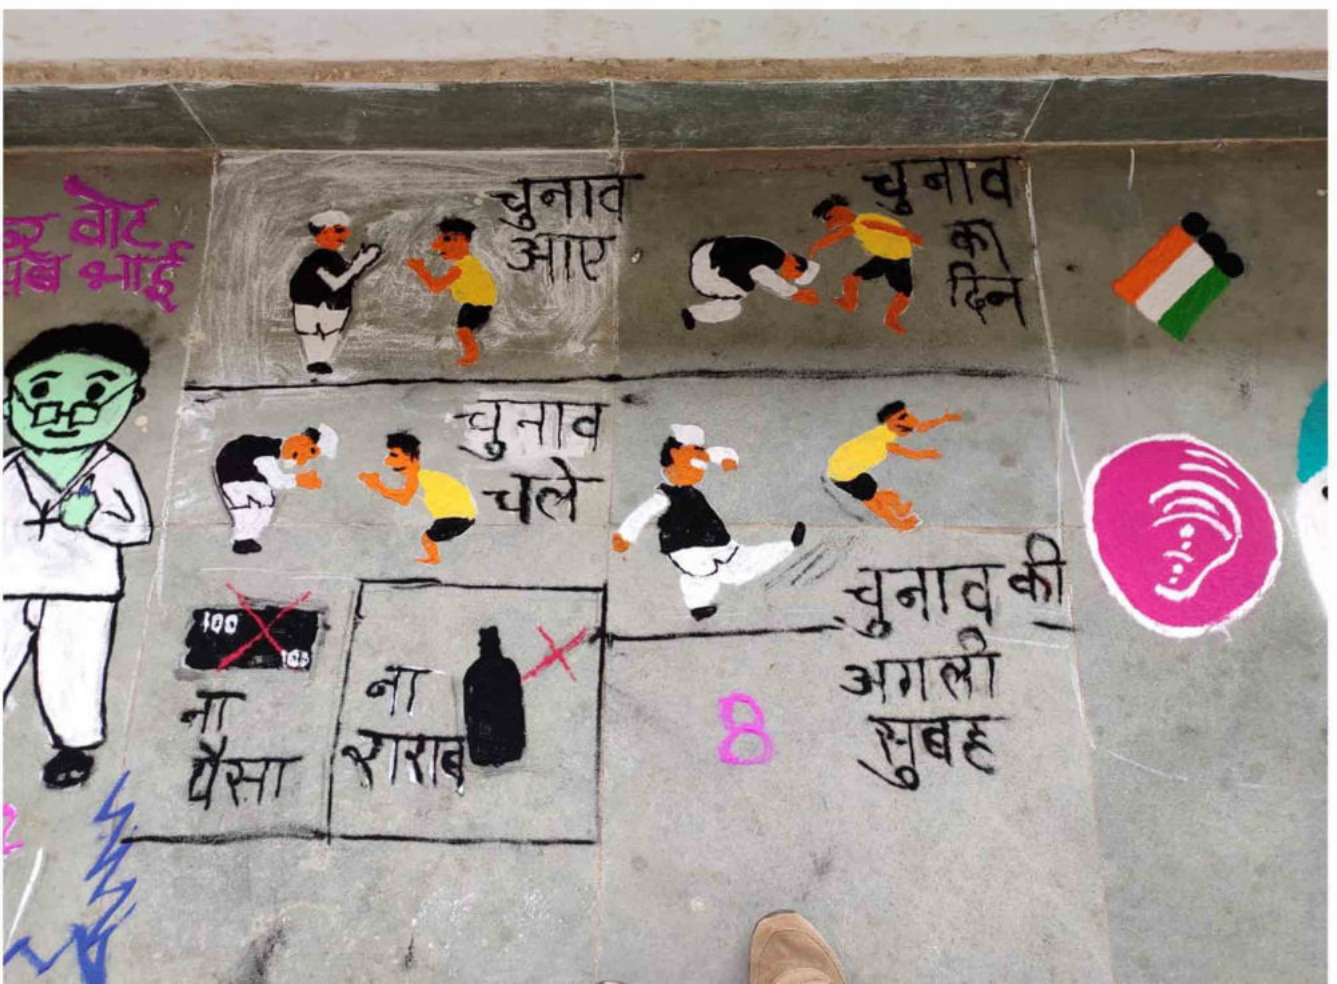 वोट
भाई
चुनाव
आए
चुनाव
का
दिन
चुनाव
चले
चुनाव की
अगली
सुबह
100
100
ना
पैसा
ना
शराब
8
2